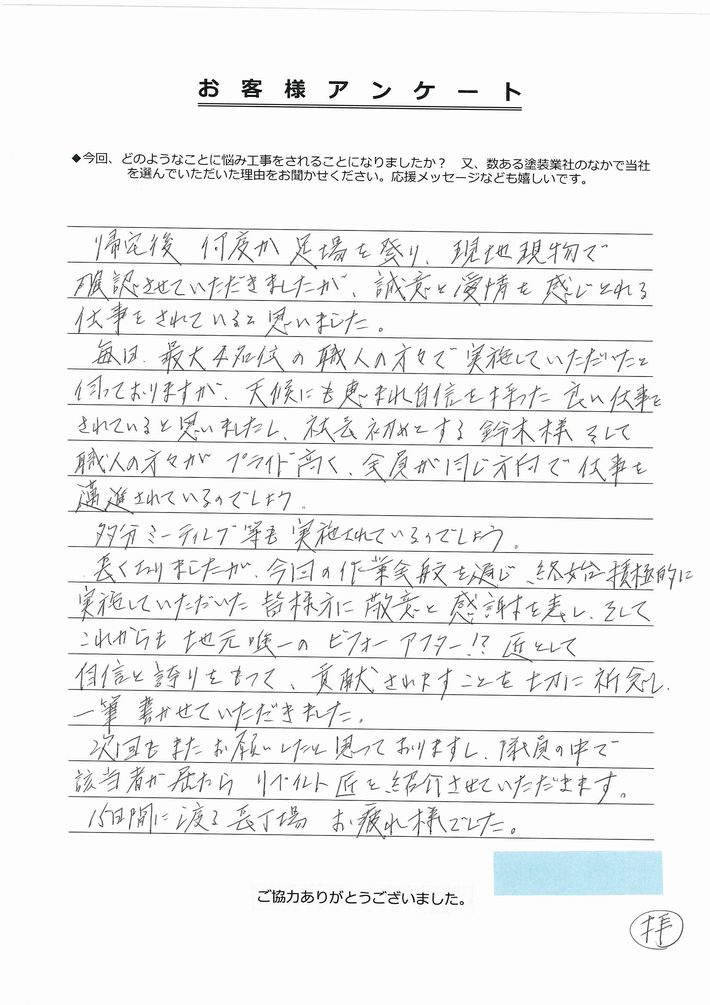 お客様アンケート
◆今回、どのようなことに悩み工事をされることになりましたか？　又、数ある塗装業社のなかで当社
を選んでいただいた理由をお聞かせください。応援メッセージなども嬉しいです。
帰宅後 何度か 足場を登り、現地現物で
確認させていただきましたが、誠意と愛情を感じとれる
仕事をされていると思いました。
毎日、最大4名位の職人の方々で実施していただいたと
伺っておりますが、天候にも恵まれ自信を持った良い仕事を
されていると思いましたし、社長初めとする鈴木様そして
職人の方々がプライド高く、全員が同じ方向で仕事を
邁進されているのでしょう。
多分ミーティング等も実施されているのでしょう。
長くなりましたが、今回の作業全般を通じ、終始積極的に
実施していただいた皆様方に敬意と感謝を表し、そして
これからも地元唯一のビフォーアフター!?匠として
自信と誇りをもって、貢献されますことを切に祈念し、
一筆書かせていただきました。
次回もまたお願いしたいと思っておりますし、隊員の中で
該当者が居たら リペイント匠を紹介させていただきます。
15日間に渡る長丁場 お疲れ様でした。
ご協力ありがとうございました。
拝